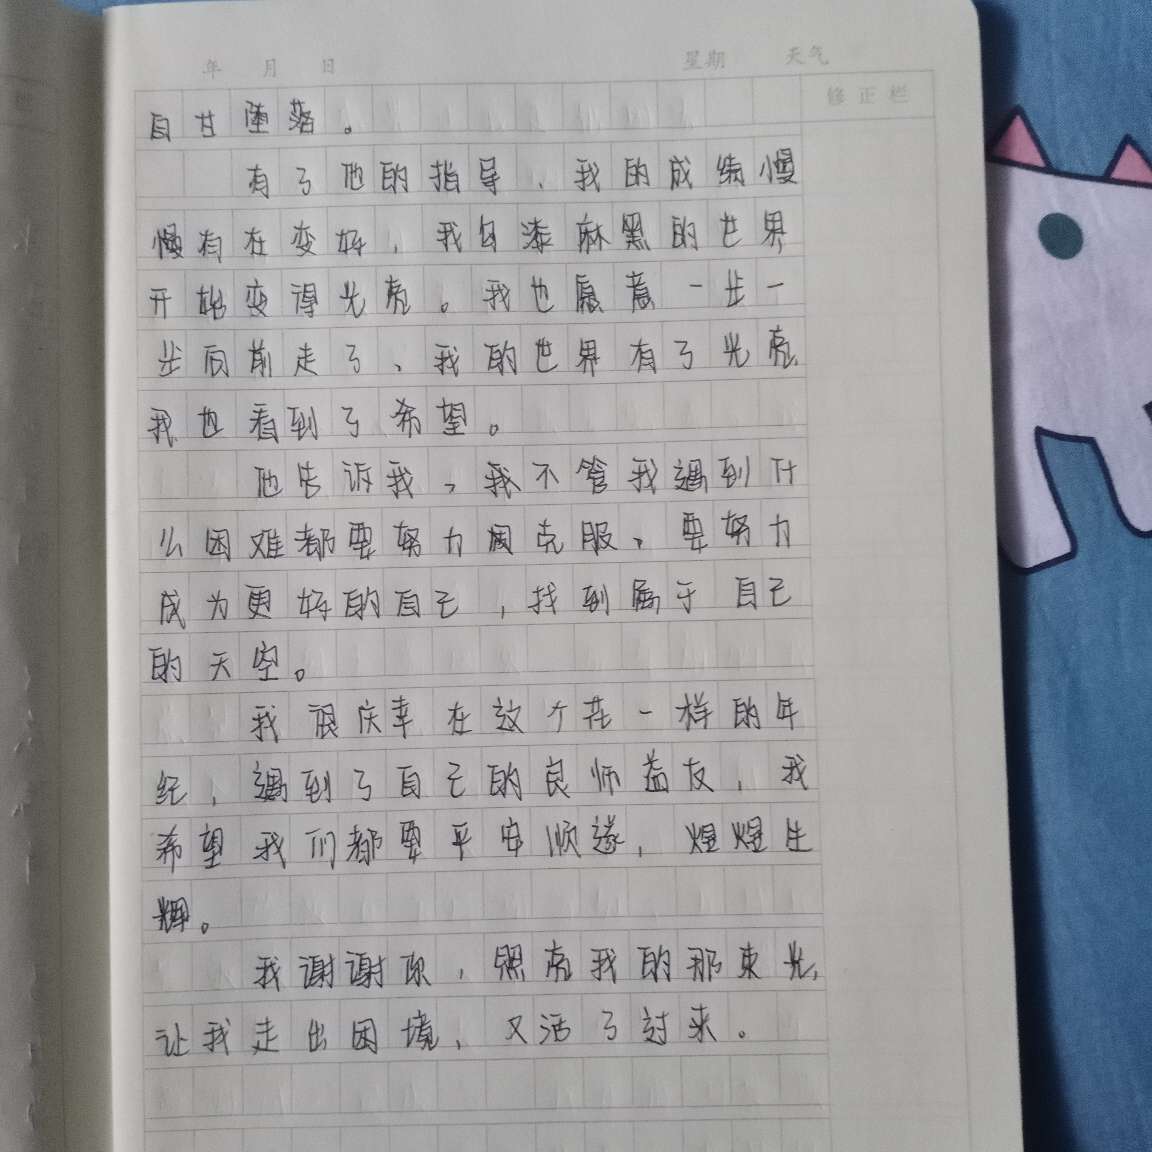 年 月 日 星期 天气
修正栏
自甘堕落。
有了他的指导，我的成绩慢
慢有在变好，我自漆麻黑的世界
开始变得光亮。我也愿意一步一
步向前走了、我的世界有了光亮，
我也看到了希望。
他告诉我，我不管我遇到什
么困难都要努力困克服，要努力
成为更好的自己，找到属于自己
的天空。
我很庆幸在这个花一样的年
纪，遇到了自己的良师益友，我
希望我们都要平安顺遂，熠熠生
辉。
我谢谢你，照亮我的那束光，
让我走出困境，又活了过来。